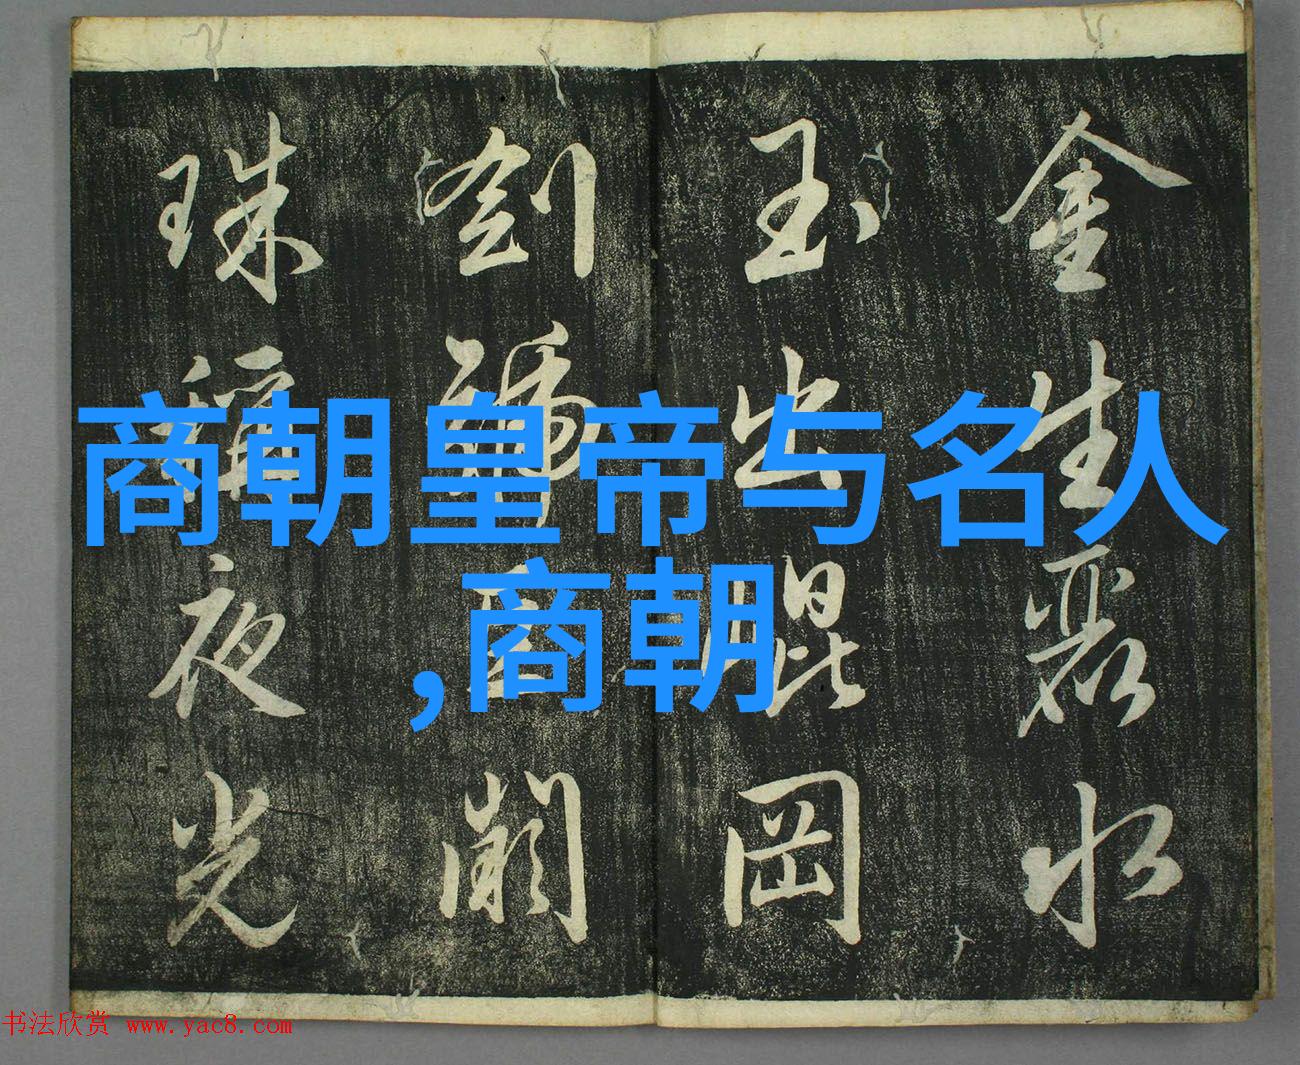 金生麗水
玉出崐岡
劍號巨闕
珠稱夜光
商朝皇帝与名人
,商朝
书法欣赏 www.yac8.com